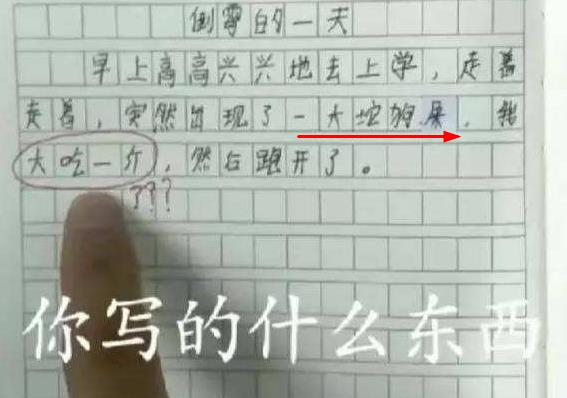 倒霉的一天
早上高高兴兴地去上学，走着
走着，突然出现了一大坨狗屎，我
大吃一斤，然后跑开了。
???
你写的什么东西